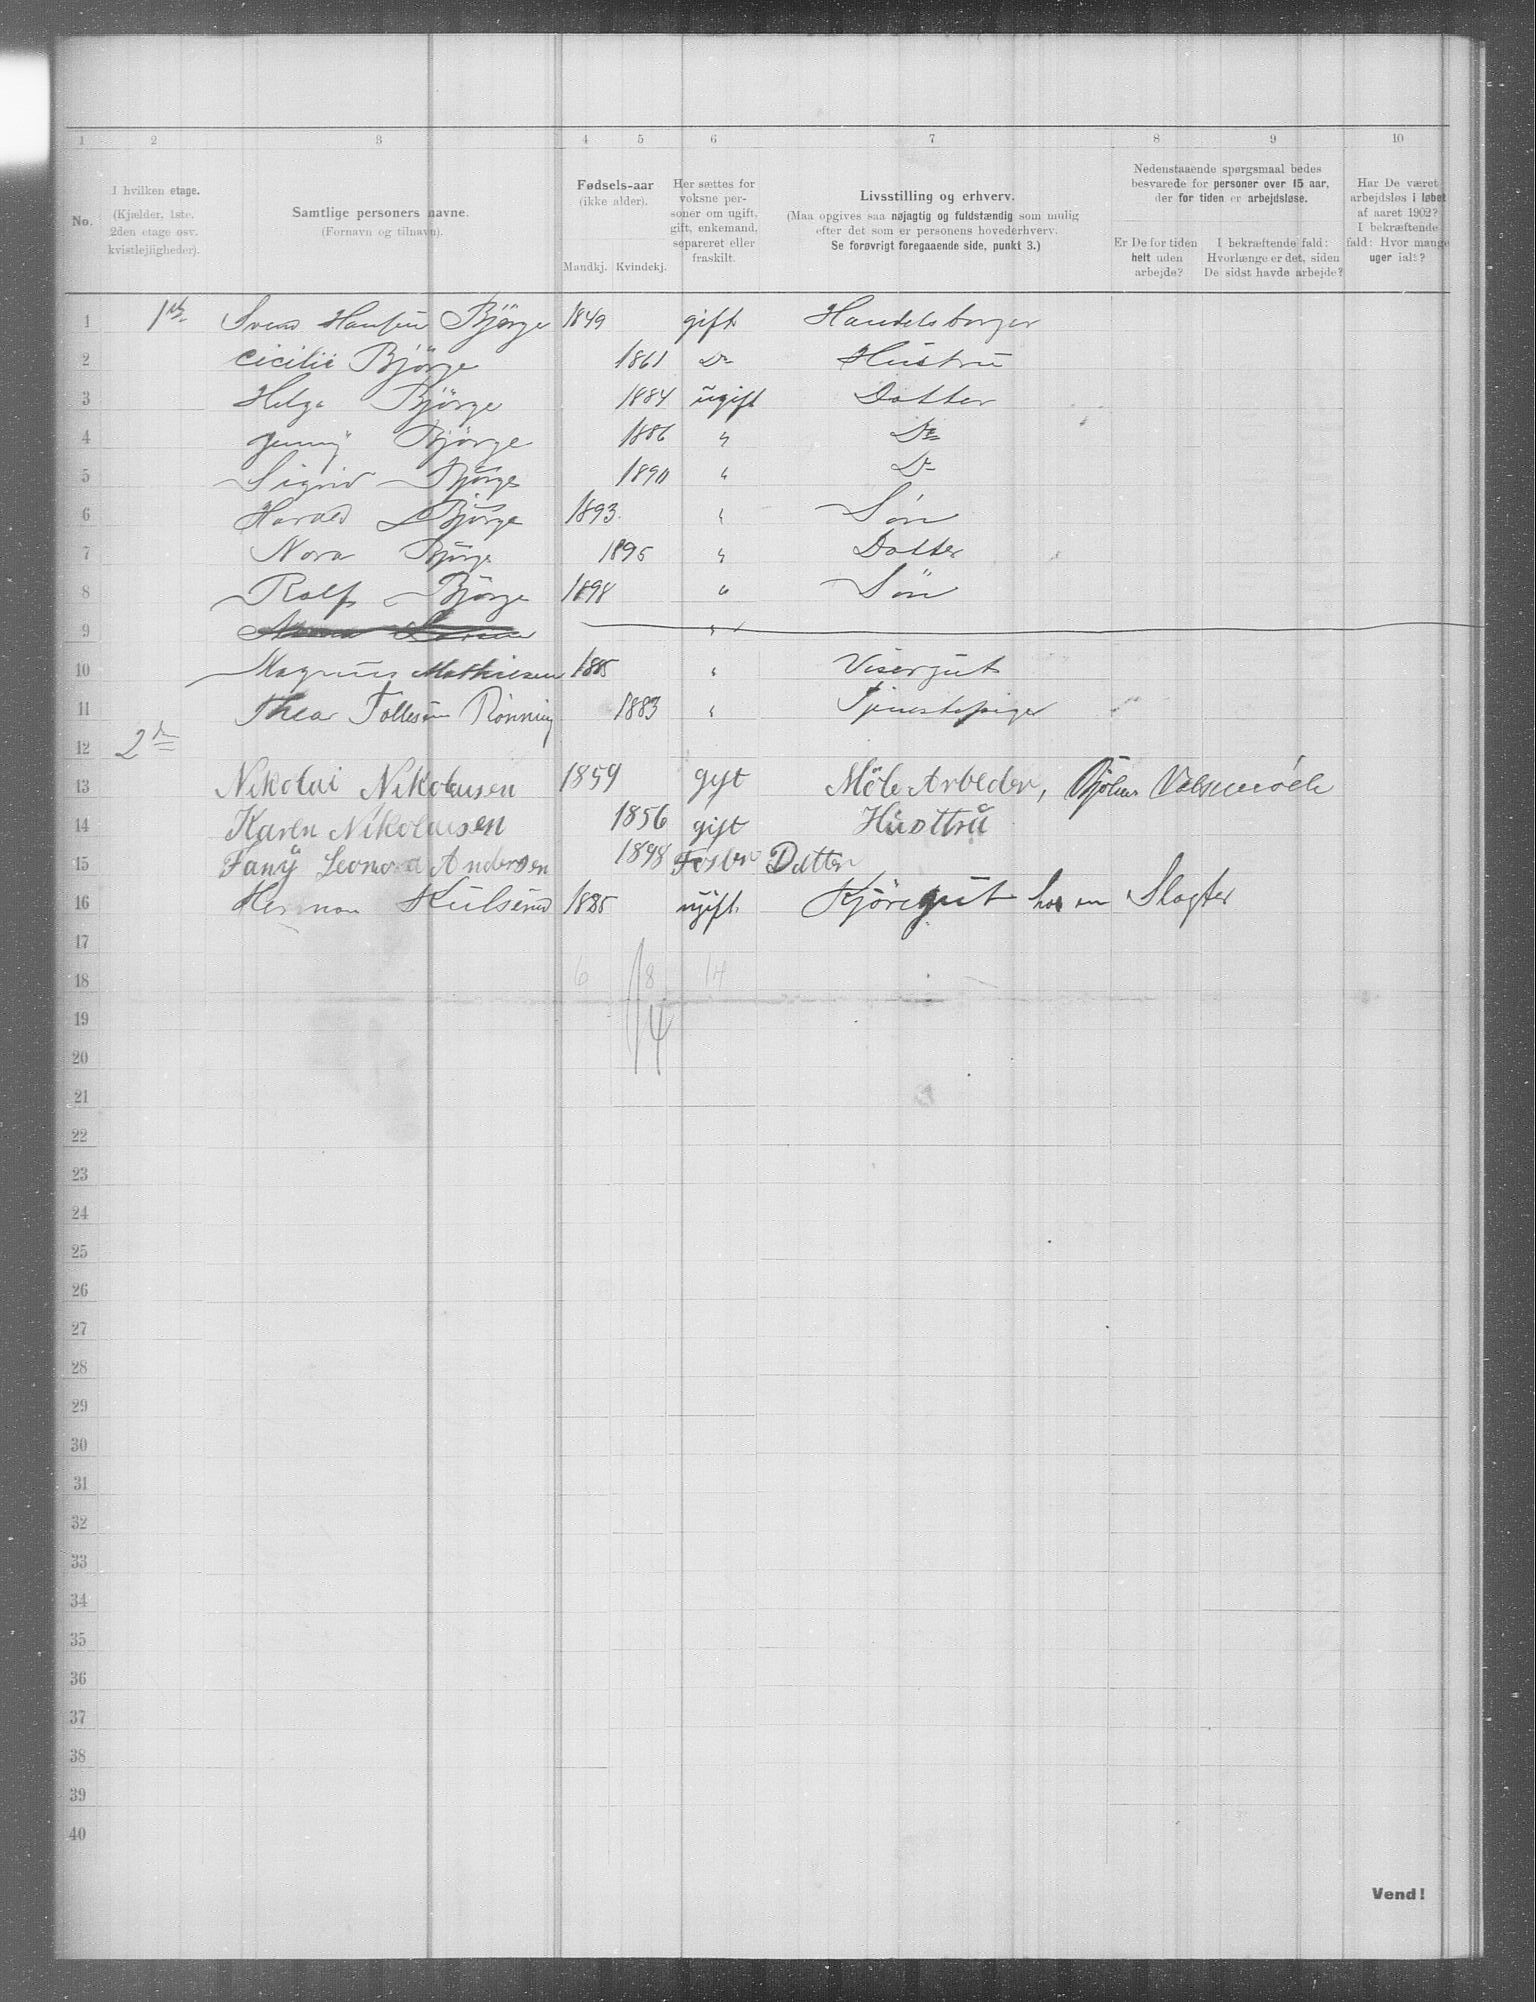 1 2 3 4 5 6 7 8 9 10
No. I hvilken etage. (Kjælder, 1ste, 2den etage osv. kvistlejligheder).
Samtlige personers navne. (Fornavn og tilnavn).
Fødsels-aar (ikke alder). Mandkj. Kvindekj.
Her sættes for voksne personer om ugift, gift, enkemand, separeret eller fraskilt.
Livsstilling og erhverv.
(Maa opgives saa nøjagtig og fuldstændig som mulig
efter det som er personens hovederhverv.
Se forøvrigt foregaaende side, punkt 3.)
Nedenstaaende spørgsmaal bedes
besvarede for personer over 15 aar,
der for tiden er arbejdsløse.
Er De for tiden helt uden arbejde?
I bekræftende fald: Hvorlænge er det, siden De sidst havde arbejde?
Har De været arbejdsløs i løbet af aaret 1902? I bekræftende fald: Hvor mange uger ialt?
1 1ste Svend Hansen Bjørge 1849 gift Handelsborger
2 Cicilie Bjørge 1861 Do Hustru
3 Helga Bjørge 1884 ugift Datter
4 Jenny Bjørge 1886 " Do
5 Sigrid Bjørge 1890 " Do
6 Harald Bjørge 1893 " Søn
7 Nora Bjørge 1895 " Datter
8 Ralf Bjørge 1898 " Søn
9 "
10 Magnus Mathiesen 1885 " Visergut
11 Thea Tollesen Rønning 1883 " Tjenestepige
12 2den
13 Nikolai Nikolaisen 1859 gift Mölle Arbeder, Bjølsen Valsemølle
14 Karen Nikolaisen 1856 gift Husttru
15 Fany Leonora Andersen 1898 Foster Datter
16 Herman Kulsrud 1885 ugift Kjöregut hos en Slagter
17
18 6 8 14
14
19
20
21
22
23
24
25
26
27
28
29
30
31
32
33
34
35
36
37
38
39
40
Vend!